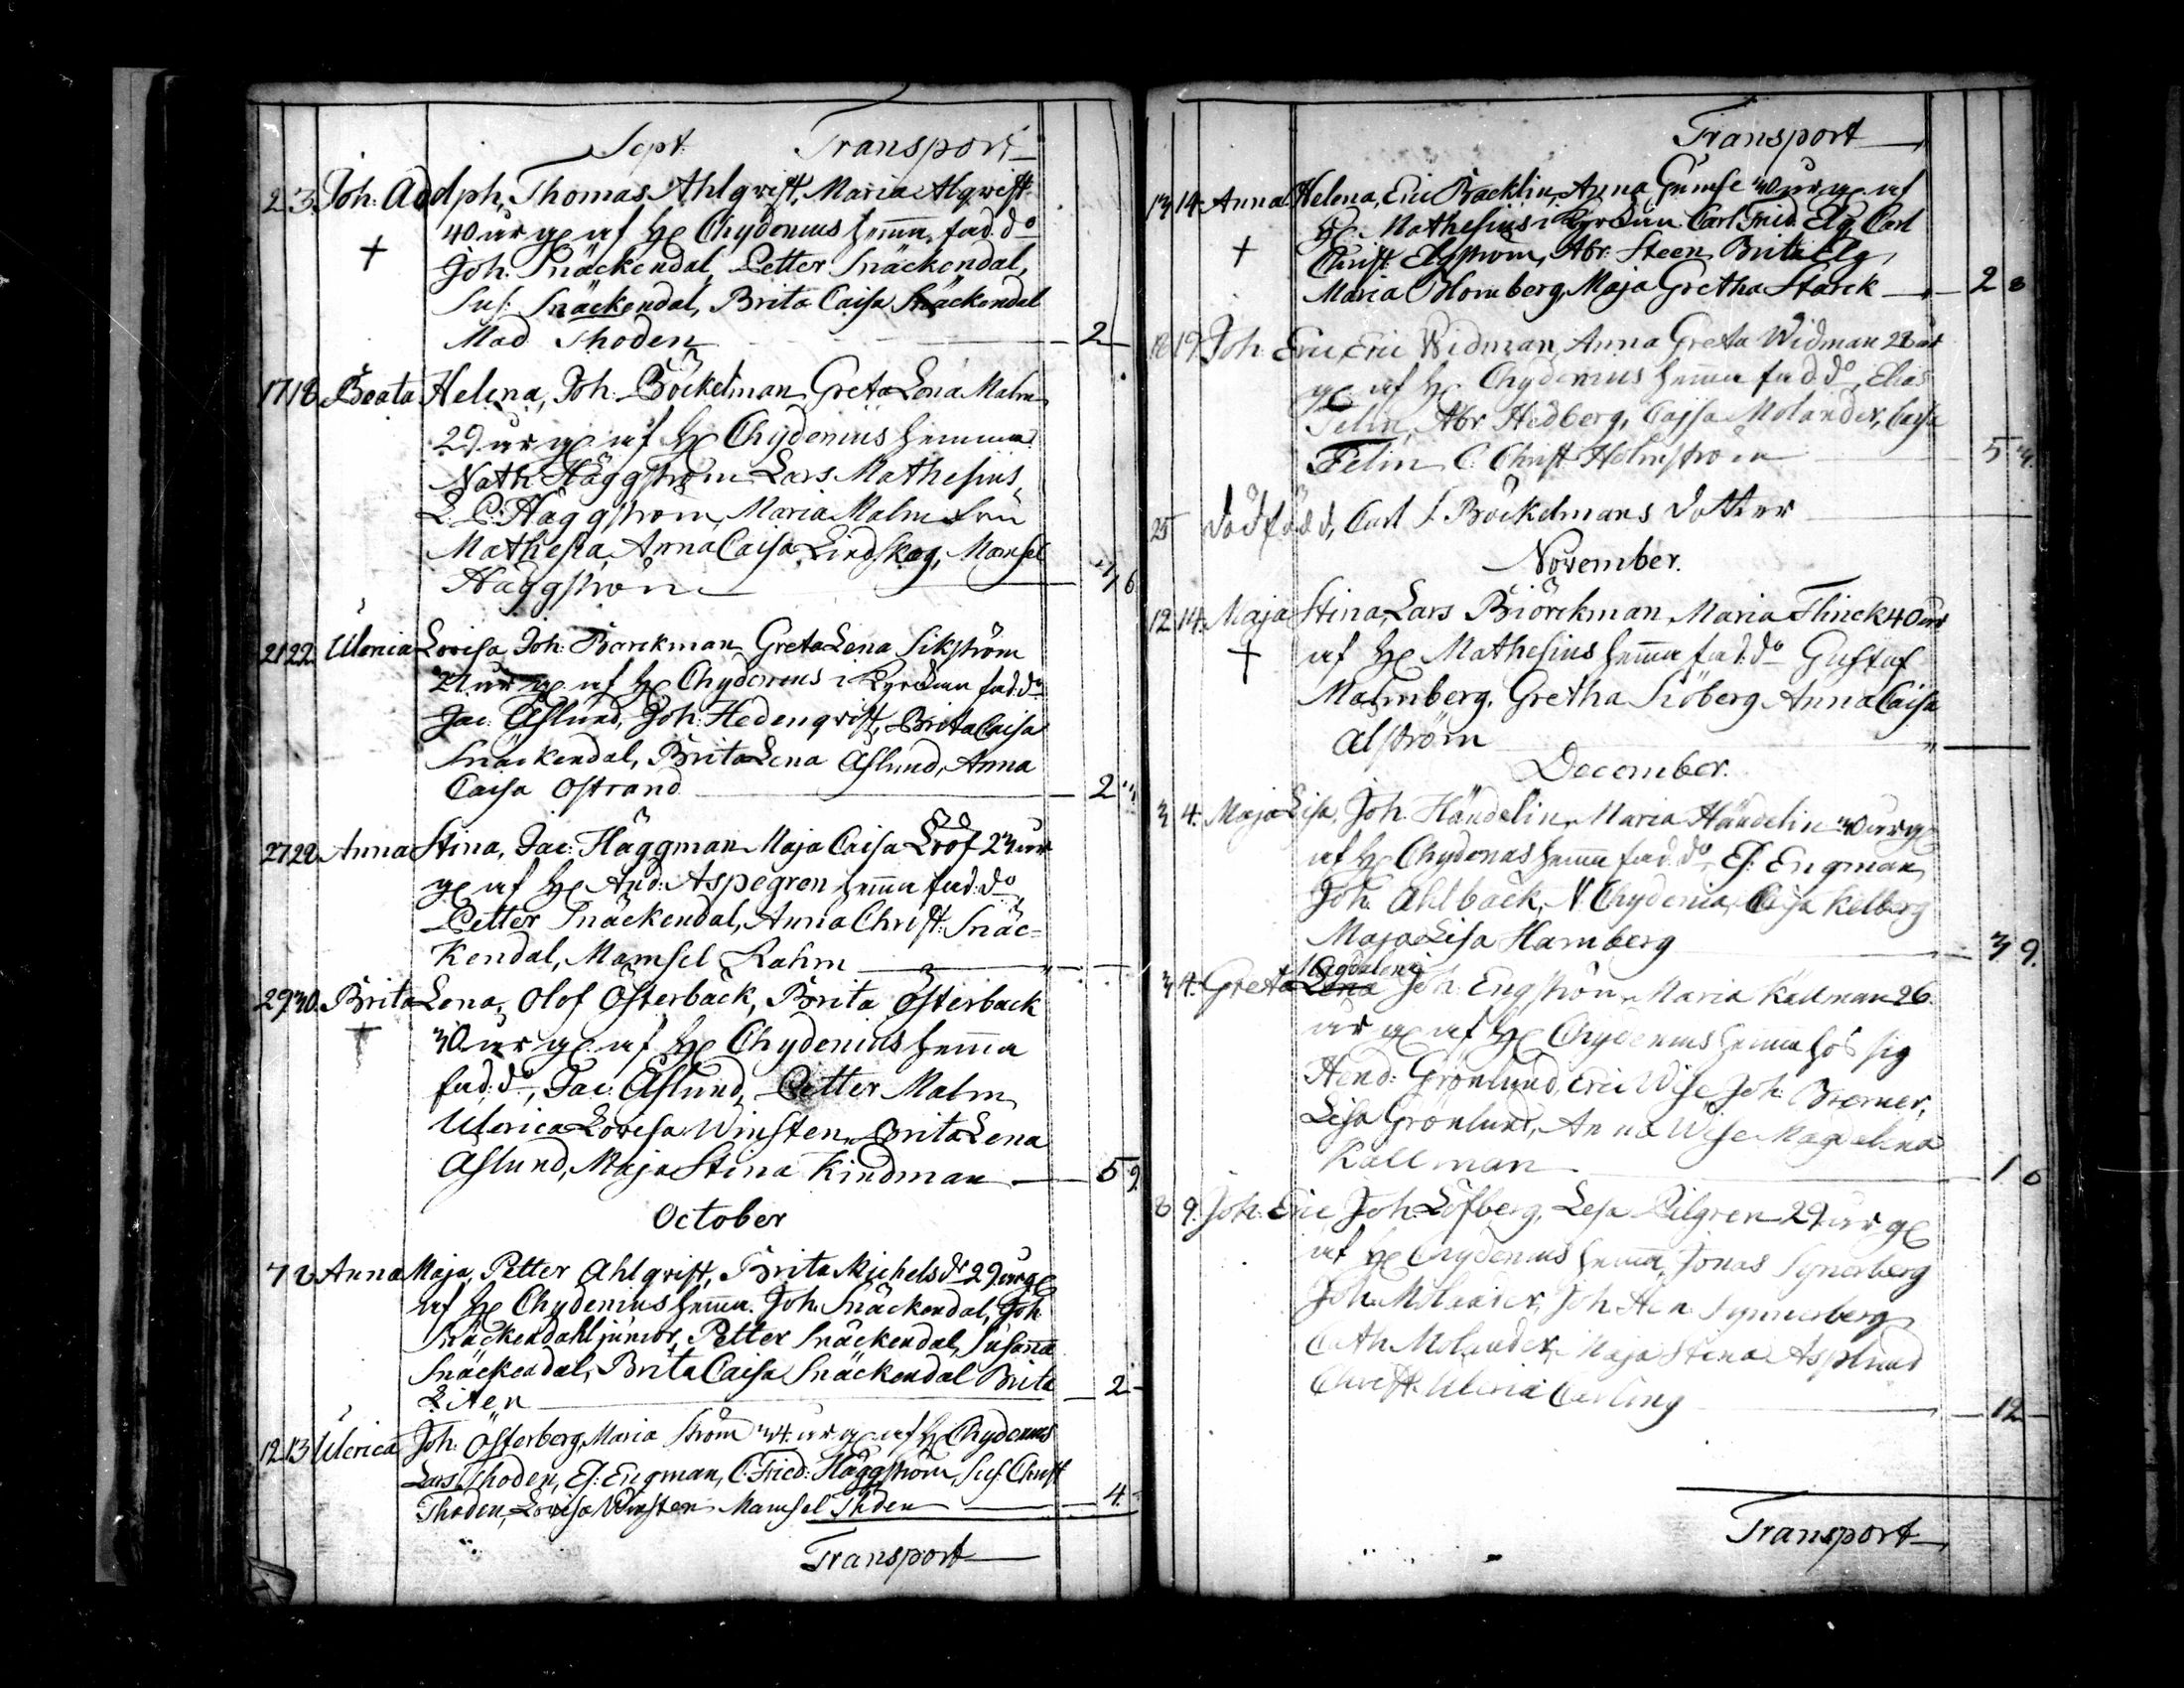 Sept. Transport
2 3 Joh: Adolph, Thomas Ahlqvist, Maria Ahlqvist
40 år gl af H Chydenius hemma fad: do
† Joh: Snäckendal, Petter Snäckendal,
Sus: Snäckendal, Brita Caisa Snäckendal
Mad Thoden 2
17 18 Beata Helena, Joh: Böckelman Greta Lena Malm
29 år gl af H Chydenius hemma
Nath: Häggström Lars Mathesius,
L: P: Häggström, Maria Malm Fru
Mathesia, Anna Caisa Lindskog, Mamsel
Häggström 6
21 22 Ulerica Lovisa, Joh: Borckman Greta Lena Sikström
år gl af H Chydenius i Kyrckan fad: do
Jac: Åslund, Joh: Hedenqvist, Brita Caisa
Snäckendal, Brita Lena Åslund, Anna
Caisa Ostrand 2
27 28 Anna Stina, Jac: Häggman Maja Caisa Lööf 23 år
gl af H And: Aspegren hemma fad: do
Petter Snäckendal, Anna Christ: Snäc=
kendal, Mamsel Rahm
29 30 Brita Lena, Olof Österback, Brita Österback
† 30 år gl af H Chydenius hemma
fad: do, Jac: Åslund, Petter Malm
Ulerica Lovisa Winsten, Brita Lena
Åslund, Maja Stina Kindman 5 9
October
7 8 Anna Maja, Petter Ahlqvist, Brita Michelsdr 29 år gl
af H Chydenius hemma. Joh: Snäckendal, Joh
Snäckendahl junior, Petter Snäckendal, Susanna
Snäckendal, Brita Caisa Snäckendal Brita
Liten 2
12 13 Ulerica Joh: Österberg Maria Ström 34 år gl af H Chydenius
Lars Thoden, El: Engman, C: Fried: Häggström, Sus: Christ
Thoden, Lovisa Winsten Mamsel Thden 4
Transport
Transport
13 14 Anna Helena, Eric Backlin, Anna Gumse 30 år gl af
H Mathesius i Kyrckan Carl Fried Elg, Carl
† Christ: Elgström, Abr: Steen Brita Elg,
Maria Blomberg, Maja Gretha Starck 2 8
18 19 Joh: Eric, Eric Widman, Anna Greta Widman 28 år
gl af H Chydenius hemma fad: do, Elias
Felin, Abr Hedberg, Cajsa Molander, Caisa
Felin C: Christ Holmström 5
25 dödfödd, Carl J Böckelmans dotter
November.
12 14 Maja Stina, Lars Biörckman Maria Flinck 40 år
† af H Mathesius hemma fad: do Gustaf
Malmberg, Gretha Siöberg Anna Caisa
Alström
December.
3 4. Maja Lisa, Joh: Händelin, Maria Händelin 30 år gl
af H Chydenius hemma fad: do, El: Engman,
Joh: Ahlback, N: Chydenia, Caisa Kelberg
Maja Lisa Hamberg 3 9.
Magdalena
3 4. Greta Lena Joh: Engström, Maria Kallman 26
år gl af H Chydenius hemma hos sig
Hend: Grönlund, Eric Wise Joh: Bremer,
Lisa Grönlund, Anna Wise Magdalena
Kallman 1 6
8 9. Joh: Eric Joh: Löfberg, Lesa Pilgren 29 år gl
af H Chydenius hemma, Jonas Synerberg
Joh: Molander, Joh Hen: Synnerberg
Cath Molander, Maja Stina Asplund
Christ: Ulerica Carling 12
Transport